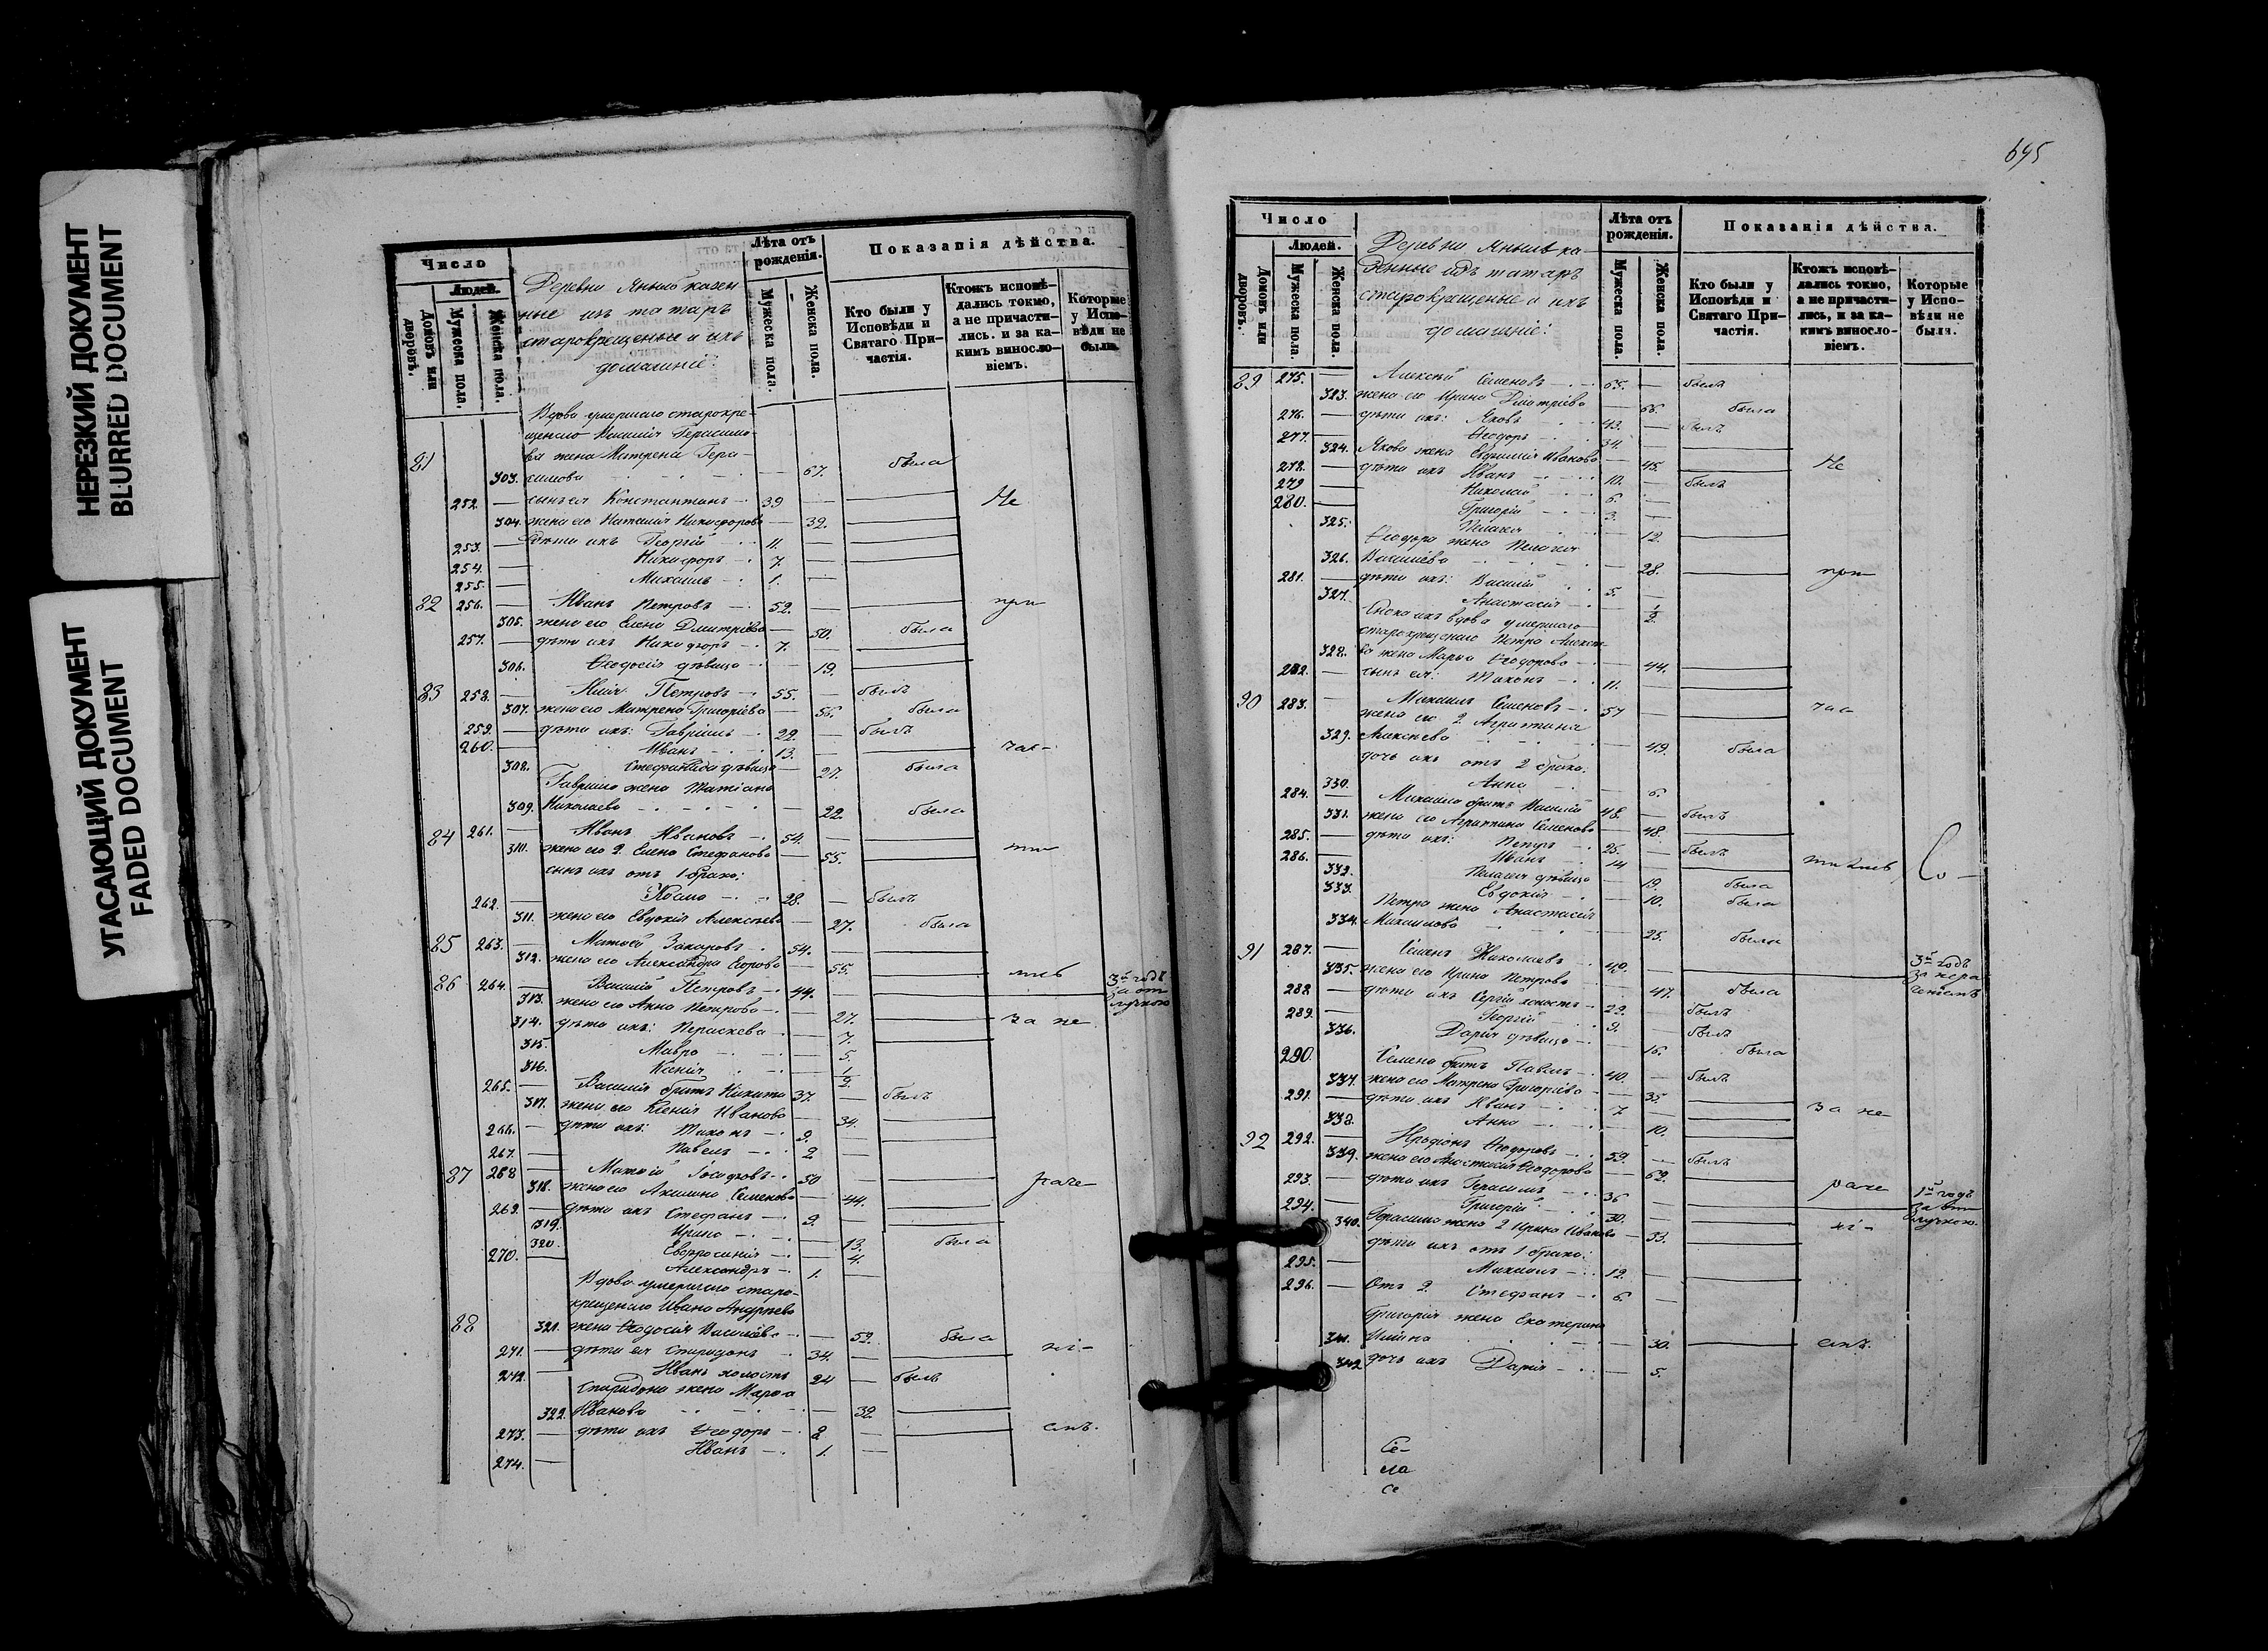 НЕРЕЗКИЙ ДОКУМЕНТ
BLURRED DOCUMENT
УГАСАЮЩИЙ ДОКУМЕНТ
FADED DOCUMENT
Число
Людей.
Домовъ или дворовъ.
Мужеска пола.
Женска пола.
Деревни Янышъ казен
ные изъ татаръ
старокрещеные и ихъ
домашніе:
Лѣта отъ рожденія.
Мужеска пола.
Женска пола.
Показанія дѣйства.
Кто были у Исповѣди и Святаго Причастія.
Ктожъ исповѣдались токмо, а не причастились. и за какимъ винословіемъ.
Которые у Исповѣди не были.
Вдова умершаго старокре-
щенаго Василія Герасимо-
81 ва жена Матрена Гера-
303. симова 67. была
252. — сынъ ея Константинъ 39 — Не
304. жена его Наталія Никифорова — 32.
253. — дѣти ихъ Георгій 11. —
254. — Никифоръ 7. —
255. — Михаилъ 1. —
82 256. — Иванъ Петровъ 52. — при
305. жена его Елена Дмитріева — 50. была
257. — дѣти ихъ Никифоръ 7. —
306. Ѳеодосія дѣвица — 19.
83 258. — Илія Петровъ 55. — былъ
307. жена его Матрена Григоріева — 56. была
259. — дѣти ихъ: Гавріилъ 22. — былъ
260. — Иванъ 13. — час-
308. Стефанида дѣвица — 27. была
Гавріила жена Татіана
309. Николаева — 22. была
84 261. — Иванъ Ивановъ 54. — ти
310. жена его 2. Елена Стефанова — 55.
сынъ ихъ отъ 1 брака:
262. Косма 28. — былъ
311. жена его Евдокія Алексѣева — 27. была
85 263. — Матѳей Захаровъ 54. —
312. жена его Александра Егорова — 55. тсь
86 264. — Василій Петровъ 44. — 3й годъ за отлучкою
313. жена его Анна Петрова — 27. за не
314. дѣти ихъ: Параскева — 7.
315. Мавра — 5.
316. Ксенія — 1/2
265. — Василія братъ Никита 37. — былъ
317. жена его Ксенія Иванова — 34.
266. — дѣти ихъ: Тихонъ 9. —
267. — Павелъ 2 —
87 268 — Матѳей Іосифовъ 50 — раче-
318. жена его Акилина Семенова — 44.
269. — дѣти ихъ Стефанъ 9. —
319. Ирина — 13. была
320. Евфросинія — 4.
270. — Александръ 1. —
Вдова умершаго старо-
крещенаго Ивана Андреева
88 321. жена Ѳеодосія Василіева — 52. была
271. — дѣти ея Спиридонъ 34. — ні-
272. — Иванъ холостъ 24 — былъ
Спиридона жена Марѳа
322. Иванова — 32.
273. — дѣти ихъ Ѳеодоръ 2 — емъ.
274. — Иванъ 1. —
695
Число
Людей.
Домовъ или дворовъ.
Мужеска пола.
Женска пола.
Деревни Янышъ ка-
зенные изъ татаръ
старокрещеные и ихъ
домашніе:
Лѣта отъ рожденія.
Мужеска пола.
Женска пола.
Показанія дѣйства.
Кто были у Исповѣди и Святаго Причастія.
Ктожъ исповѣдались токмо, а не причастились, и за какимъ винословіемъ.
Которые у Исповѣди не были.
89 275. — Алексѣй Семеновъ 65. — былъ
323. жена его Ирина Дмитріева — 66. была
276. — дѣти ихъ: Яковъ 43. — былъ
277. — Ѳеодоръ 34.
324. Якова жена Евфимія Иванова — 45. Не
278. — дѣти ихъ Иванъ 10. — былъ
279 — Николай 6. —
280. — Григорій 3. —
325. Пелагея — 12.
Ѳеодора жена Пелагея
326. Василіева — 28. при
281. — дѣти ихъ: Василій 5. —
327. Анастасія — 1/2
Сноха ихъ вдова умершаго
старокрещенаго Петра Алексѣе
328. ва жена Марѳа Ѳеодорова — 44.
282. — сынъ ея: Тихонъ 11. —
90 283. — Михаилъ Семеновъ 57 — час
жена его 2. Агрипина
329. Алексѣева — 49. была
дочь ихъ отъ 2 брака:
330. Анна — 6.
284. — Михаила братъ Василій 48. — былъ
331. жена его Агрипина Семенова — 48.
285. — дѣти ихъ: Петръ 25. — былъ
286. — Иванъ 14
332. Пелагея дѣвица — 19. была
333. Евдокія — 10. была
Петра жена Анастасія
334. Михаилова — 25. была
91 287. — Семенъ Николаевъ 49. — 3й годъ за нераченіемъ
335. жена его Ирина Петрова — 47. была
288 — дѣти ихъ Сергій холостъ 22. — былъ
289. — Георгій 9. — былъ
336. Дарія дѣвица — 16. была
290. Семена братъ Павелъ 40. — былъ
337. жена его Матрена Григоріева — 35.
291. — дѣти ихъ Иванъ 7 — за не
338. Анна — 10.
92 292. — Иродіонъ Ѳеодоровъ 59. — былъ
339. жена его Анастасія Ѳеодорова — 62.
293. — дѣти ихъ Герасимъ 36 — раче 1й годъ за отлучкою.
294. — Григорій 30.
340. Герасима жена 2 Ирина Иванова — 33. ні-
дѣти ихъ отъ 1 брака:
295. — Михаилъ 12. —
296. — Отъ 2. Стефанъ 6. —
Григорія жена Екатерина
341. Ильина — 30. емъ.
342 дочь ихъ Дарія — 5.
Се-
ла
Се